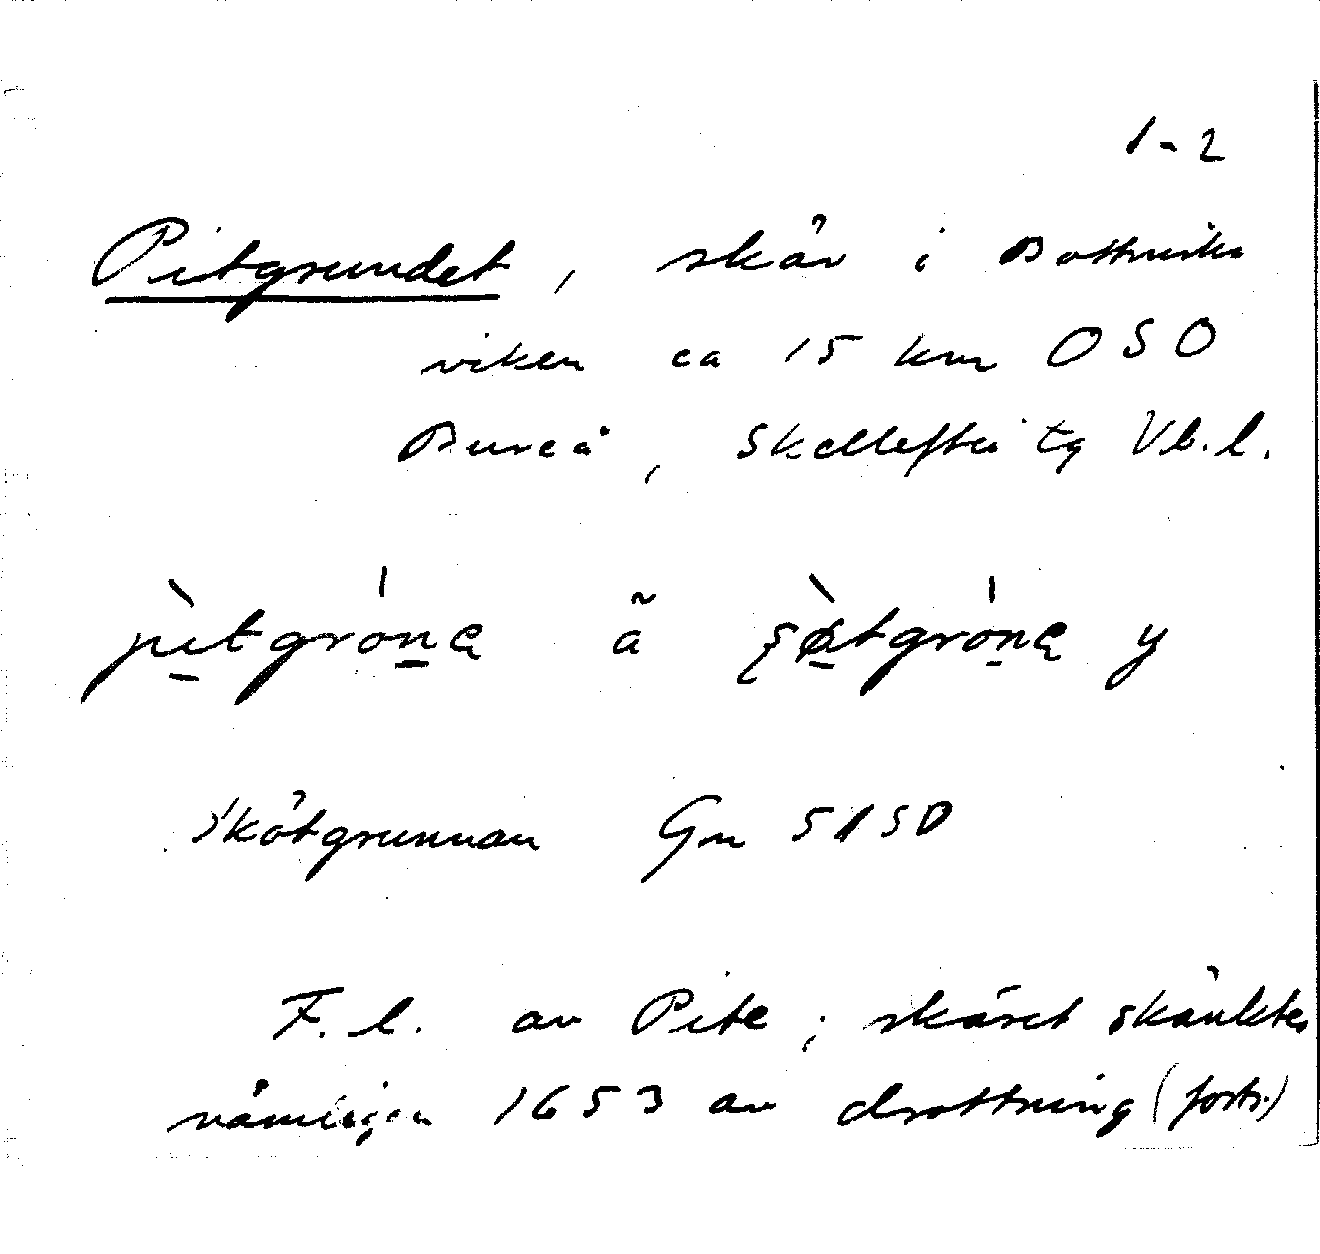 1-2
Pitgrundet, skär i Bottniska
viken ca 15 km OSO
Bureå, Skellefteå tg Vb.l.
pìtgrónę ã y
Skötgrunnan Gm 5150
F.l. av Pite; skäret skänktes
nämligen 1653 av drottning (forts.)